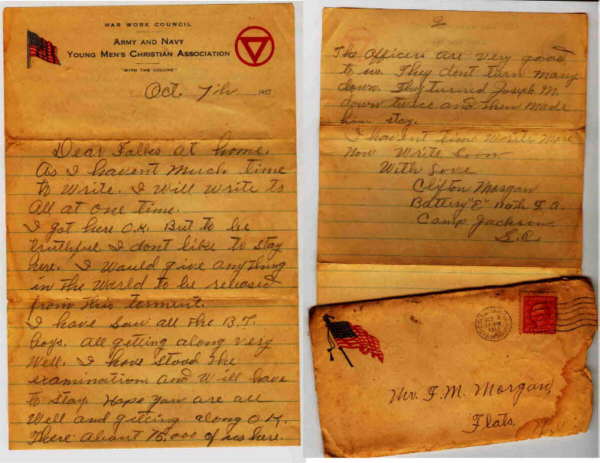 WAR WORK COUNCIL
ARMY AND NAVY
YOUNG MEN'S CHRISTIAN ASSOCIATION
"WITH THE COLORS"
Oct. 7th
Dear Folks at home.
As I havent much time
to write. I will write to
all at one time.
I got here O.K. But to be
truthful I dont like to stay
here. I would give anything
in the world to be released
from this torment.
I have saw all the B.T.
boys. All getting along very
well. I have stood the
examination and will have
to stay. Hope you are all
well and getting along O.K.
There about of us here.
2
The Officers are very good
to us. They dont turn many
down. They turned Joseph M.
down twice and then made
him stay.
I havent time write more
now Write Soon
With Love
Clifton Morgan
Battery "E" F.A.
Camp Jackson
S.C.
Mr. F.M. Morgan,
Flats.